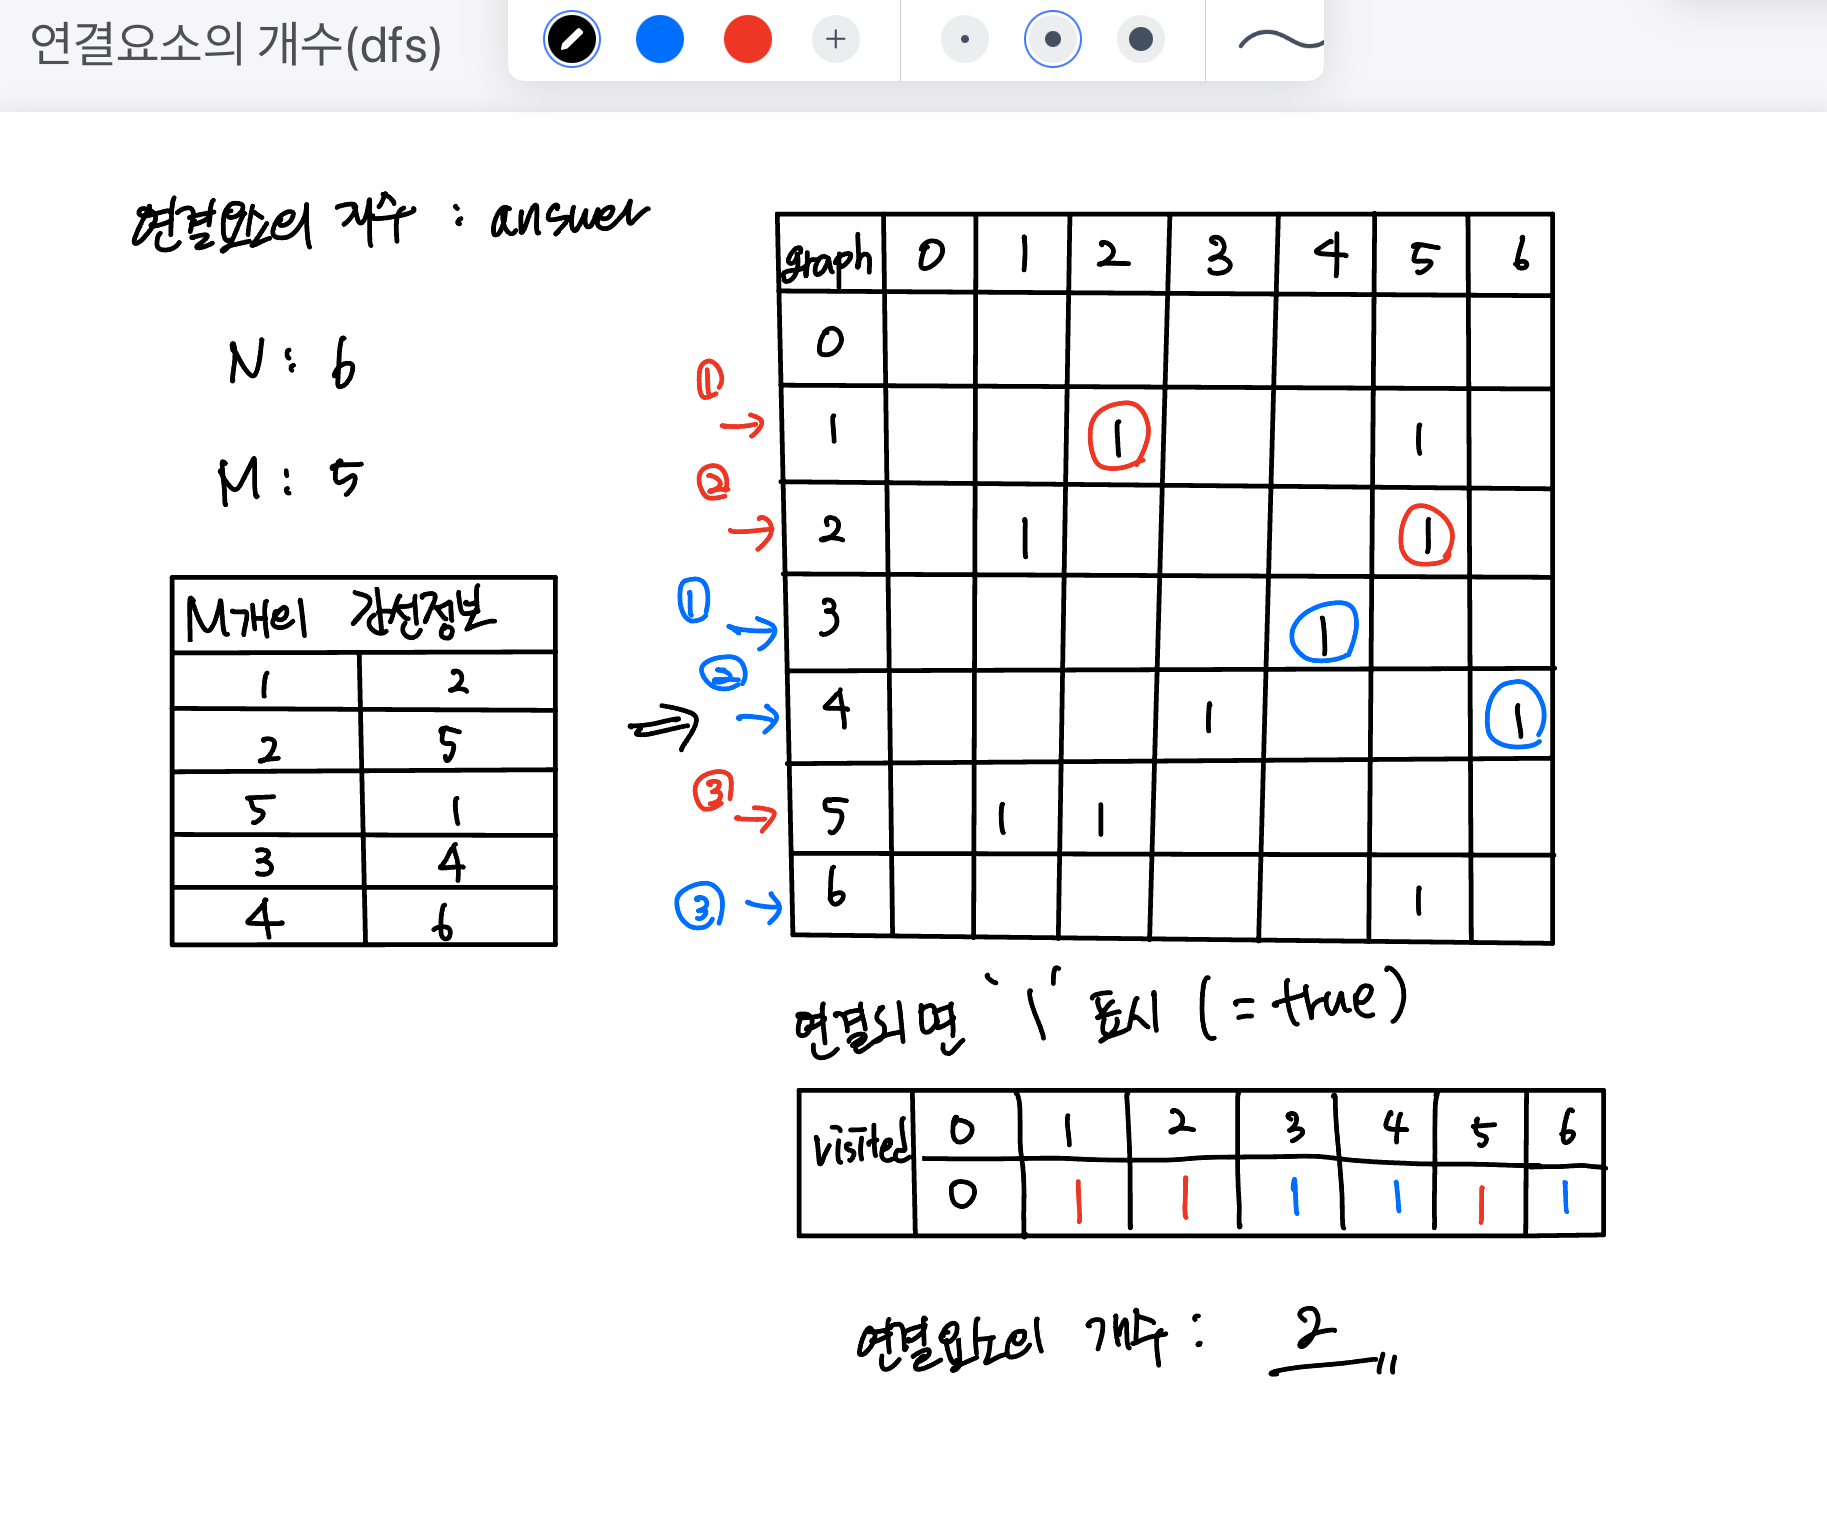 연결요소의 개수(dfs)
연결요소의 개수 : answer
N : 6
M : 5
M개의 간선정보
1 2
2 5
5 1
3 4
4 6
⇒
graph 0 1 2 3 4 5 6
0
① → 1 1 1
② → 2 1 1
① → 3 1
② → 4 1 1
③ → 5 1 1
③ → 6 1
연결되면 '1' 표시 (= true)
visited 0 1 2 3 4 5 6
0 1 1 1 1 1 1
연결요소의 개수 : 2